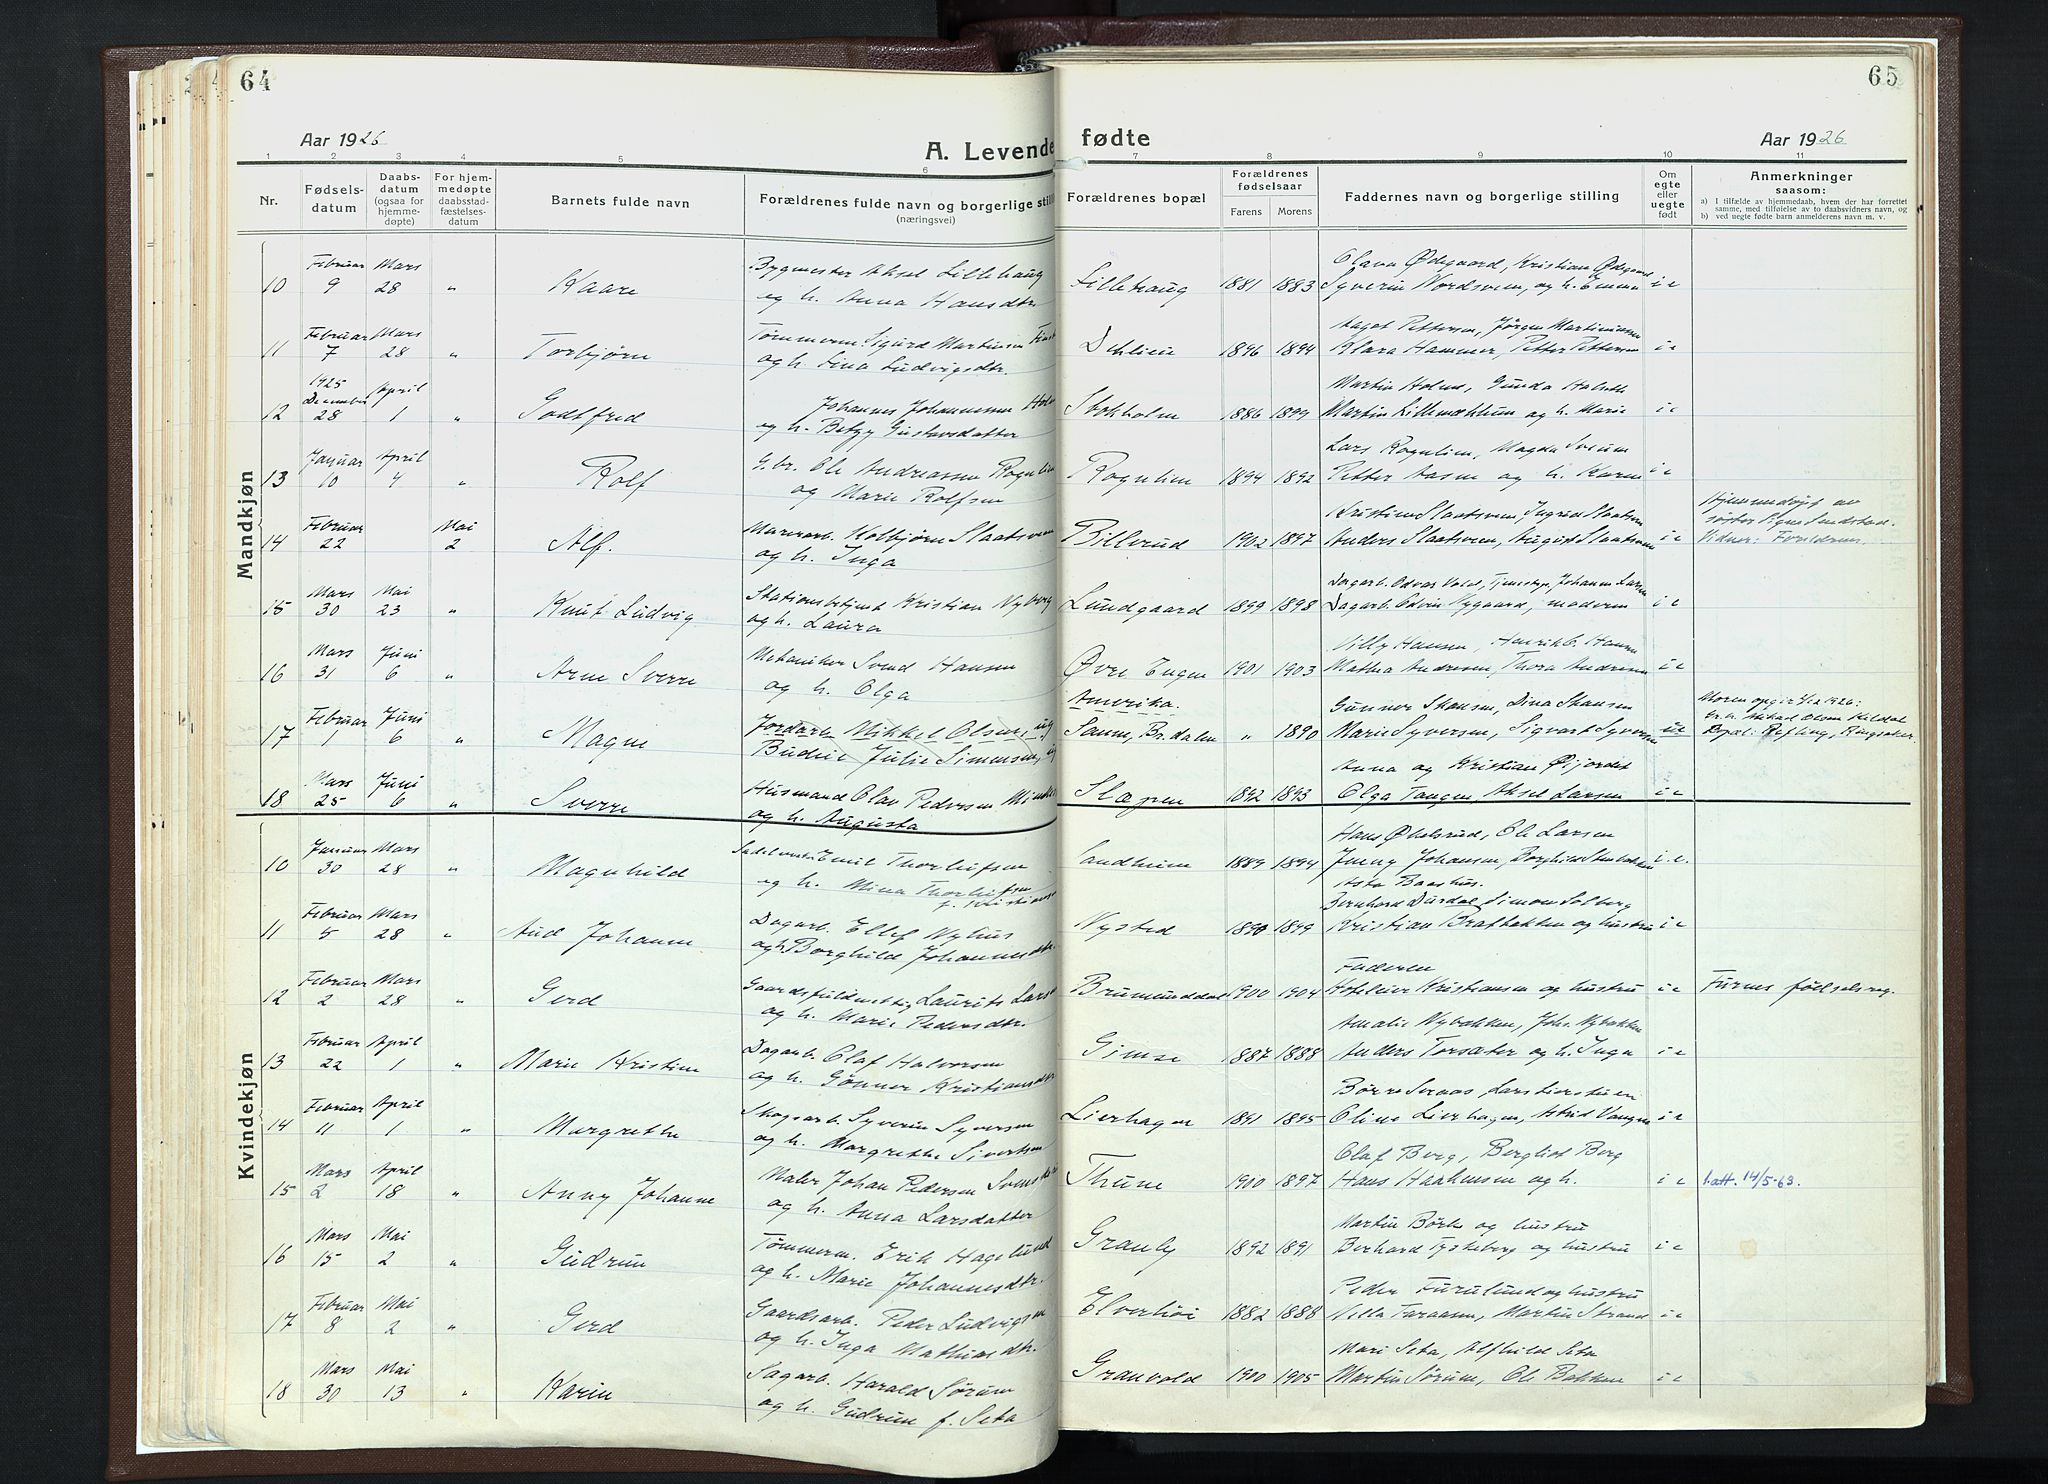 64
65
Aar 1926
A. Levende fødte
Aar 1926
1 2 3 4 5 6 7 8 9 10 11
Nr.
Fødsels-
datum
Daabs-
datum
(ogsaa for
hjemme-
døpte)
For hjem-
medøpte
daabsstad-
fæstelses-
datum
Barnets fulde navn
Forældrenes fulde navn og borgerlige still
(næringsvei)
Forældrenes bopæl
Forældrenes
fødselsaar
Farens Morens
Faddernes navn og borgerlige stilling
Om
egte
eller
uegte
født
Anmerkninger
saasom:
a) I tilfælde av hjemmedaab, hvem der har forrettet
samme, med tilføielse av to daabsvidners navn, og
b) ved uegte fødte barn anmelderens navn m. v.
Mandkjøn
Februar Mars Bygmester Aksel Lillehaug Olava Ødegaard, Kristian Ødegaard
10 9 28 " Kaare og h. Anna Hansdtr. Lillehaug 1881 1883 Syverin Nordsveen, og h. Emma i e
Februar Mars Tømmerm. Sigurd Martinsen Aagot Pettersen, Jørgen Martiniussen
11 7 28 " Torbjørn og h. Lina Ludvigsdtr. Dehlien 1896 1894 Klara Hammer, Petter Pettersen i e
1925
December April Johannes Johannessen Holm Martin Holm, Gunda
12 28 1 " Godtfred og h. Betzy Gustavsdatter Stokholm 1886 1899 Martin og h. Marie i e
Januar April G.br. Ole Andreassen Rognlien Lars Rognlien, Magda Sveum
13 10 4 " Rolf og Marie Rolfsen Rognlien 1894 1892 Petter Aasen og h. Karen i e
Februar Mai Murerarb. Kolbjørn Slaatsveen Kristian Slaatsveen, Ingrid Slaatsveen Hjemmedøpt av
14 22 2 Alf. og h. Inga Billerud 1902 1897 Anders Slaatsveen, August Slaatsveen i e søster Signe
Vidner: Forældrene.
Mars Mai Stationsbetjent Kristian Nyborg Dagarb. Odvar Vold, Johanne Larsen
15 30 23 " Knut Ludvig og h. Laura Lundgaard 1899 1898 Dagarb. Odvin Nygaard, moderen i e
Mars Juni Mekaniker Svend Hansen Villy Hansen, Henrik O. Hansen
16 31 6 " Arne Sverre og h. Olga Øvre Engen 1901 1903 Martha Andresen, Thora Andresen i e
Februar Juni Jordarb. Mikkel Olsen, ug. Amerika. Gunnar Skansen, Dina Skansen
17 1 6 " Magne Budeie Julie Simensen, ug Br.dalen " 1890 Marie Syversen, Sigvart Syversen ue
Mars Juni Husmand Olav Pedersen Anna og Kristian Øijordet
18 25 6 " Sverre og h. Augusta Slæpen 1892 1893 Olga Tangen, Aksel Larsen i e
Kvindekjøn
Januar Mars Emil Thorleifsen Hans Ole Larsen
10 30 28 " Magnhild og h. Mina Thorleifsen Sandheim 1889 1894 Jenny Johansen, Borghild i e.
f. Kristiansen Asta Baashus.
Februar Mars Dagarb. Ellef Nyhus Bernhard Simon Solberg
11 5 28 " Aud Johanne og h. Borghild Johannesdtr. Nysted 1890 1899 Kristian Bratbakken og hustru i e
Februar Mars Gaardsfuldmektig Laurits Larsen Faderen
12 2 28 " Gerd og h. Marie Pedersdtr. Brumunddal 1900 1904 Hoteleier Kristiansen og hustru i e Furnes fødselsreg.
Februar April Dagarb. Olaf Halvorsen Amalie Nybakken, Johs. Nybakken
13 22 1 " Marie Kristine og h. Gønner Kristiansdtr Gimse 1887 1888 Anders Torsæter og h. Inga i e
Februar April Skogsarb. Syverin Syversen Børre Lars
14 11 1 " Margrethe og h. Margrethe Sivertsen Lierhagen 1891 1895 Oline Lierhagen, Astrid Vangen i e
Mars April Maler Johan Pedersen Olaf Berg, Bergliot Berg
15 2 18 " Anny Johanne og h. Anna Larsdatter Thune 1900 1897 Hans Haakensen og h. i e l.att. 14/5-63.
Mars Mai Tømmerm. Erik Hagelund Martin og hustru
16 15 2 " Gudrun og h. Marie Johannesdtr. Granly 1892 1891 Berhard Tyskeberg og hustru i e
Februar Mai Gaardsarb. Peder Ludvigsen Peder Furulund og hustru
17 8 2 " Gerd og h. Inga Mathiasdtr. Elverhøi 1882 1888 Martin Strand i e
Mars Mai Sagarb. Harald Sørum Mari Seta, Alfhild Seta
18 30 13 " Karin og h. Gudrun f. Seta Granvold 1900 1905 Martin Sørum, Ole Bakken i e